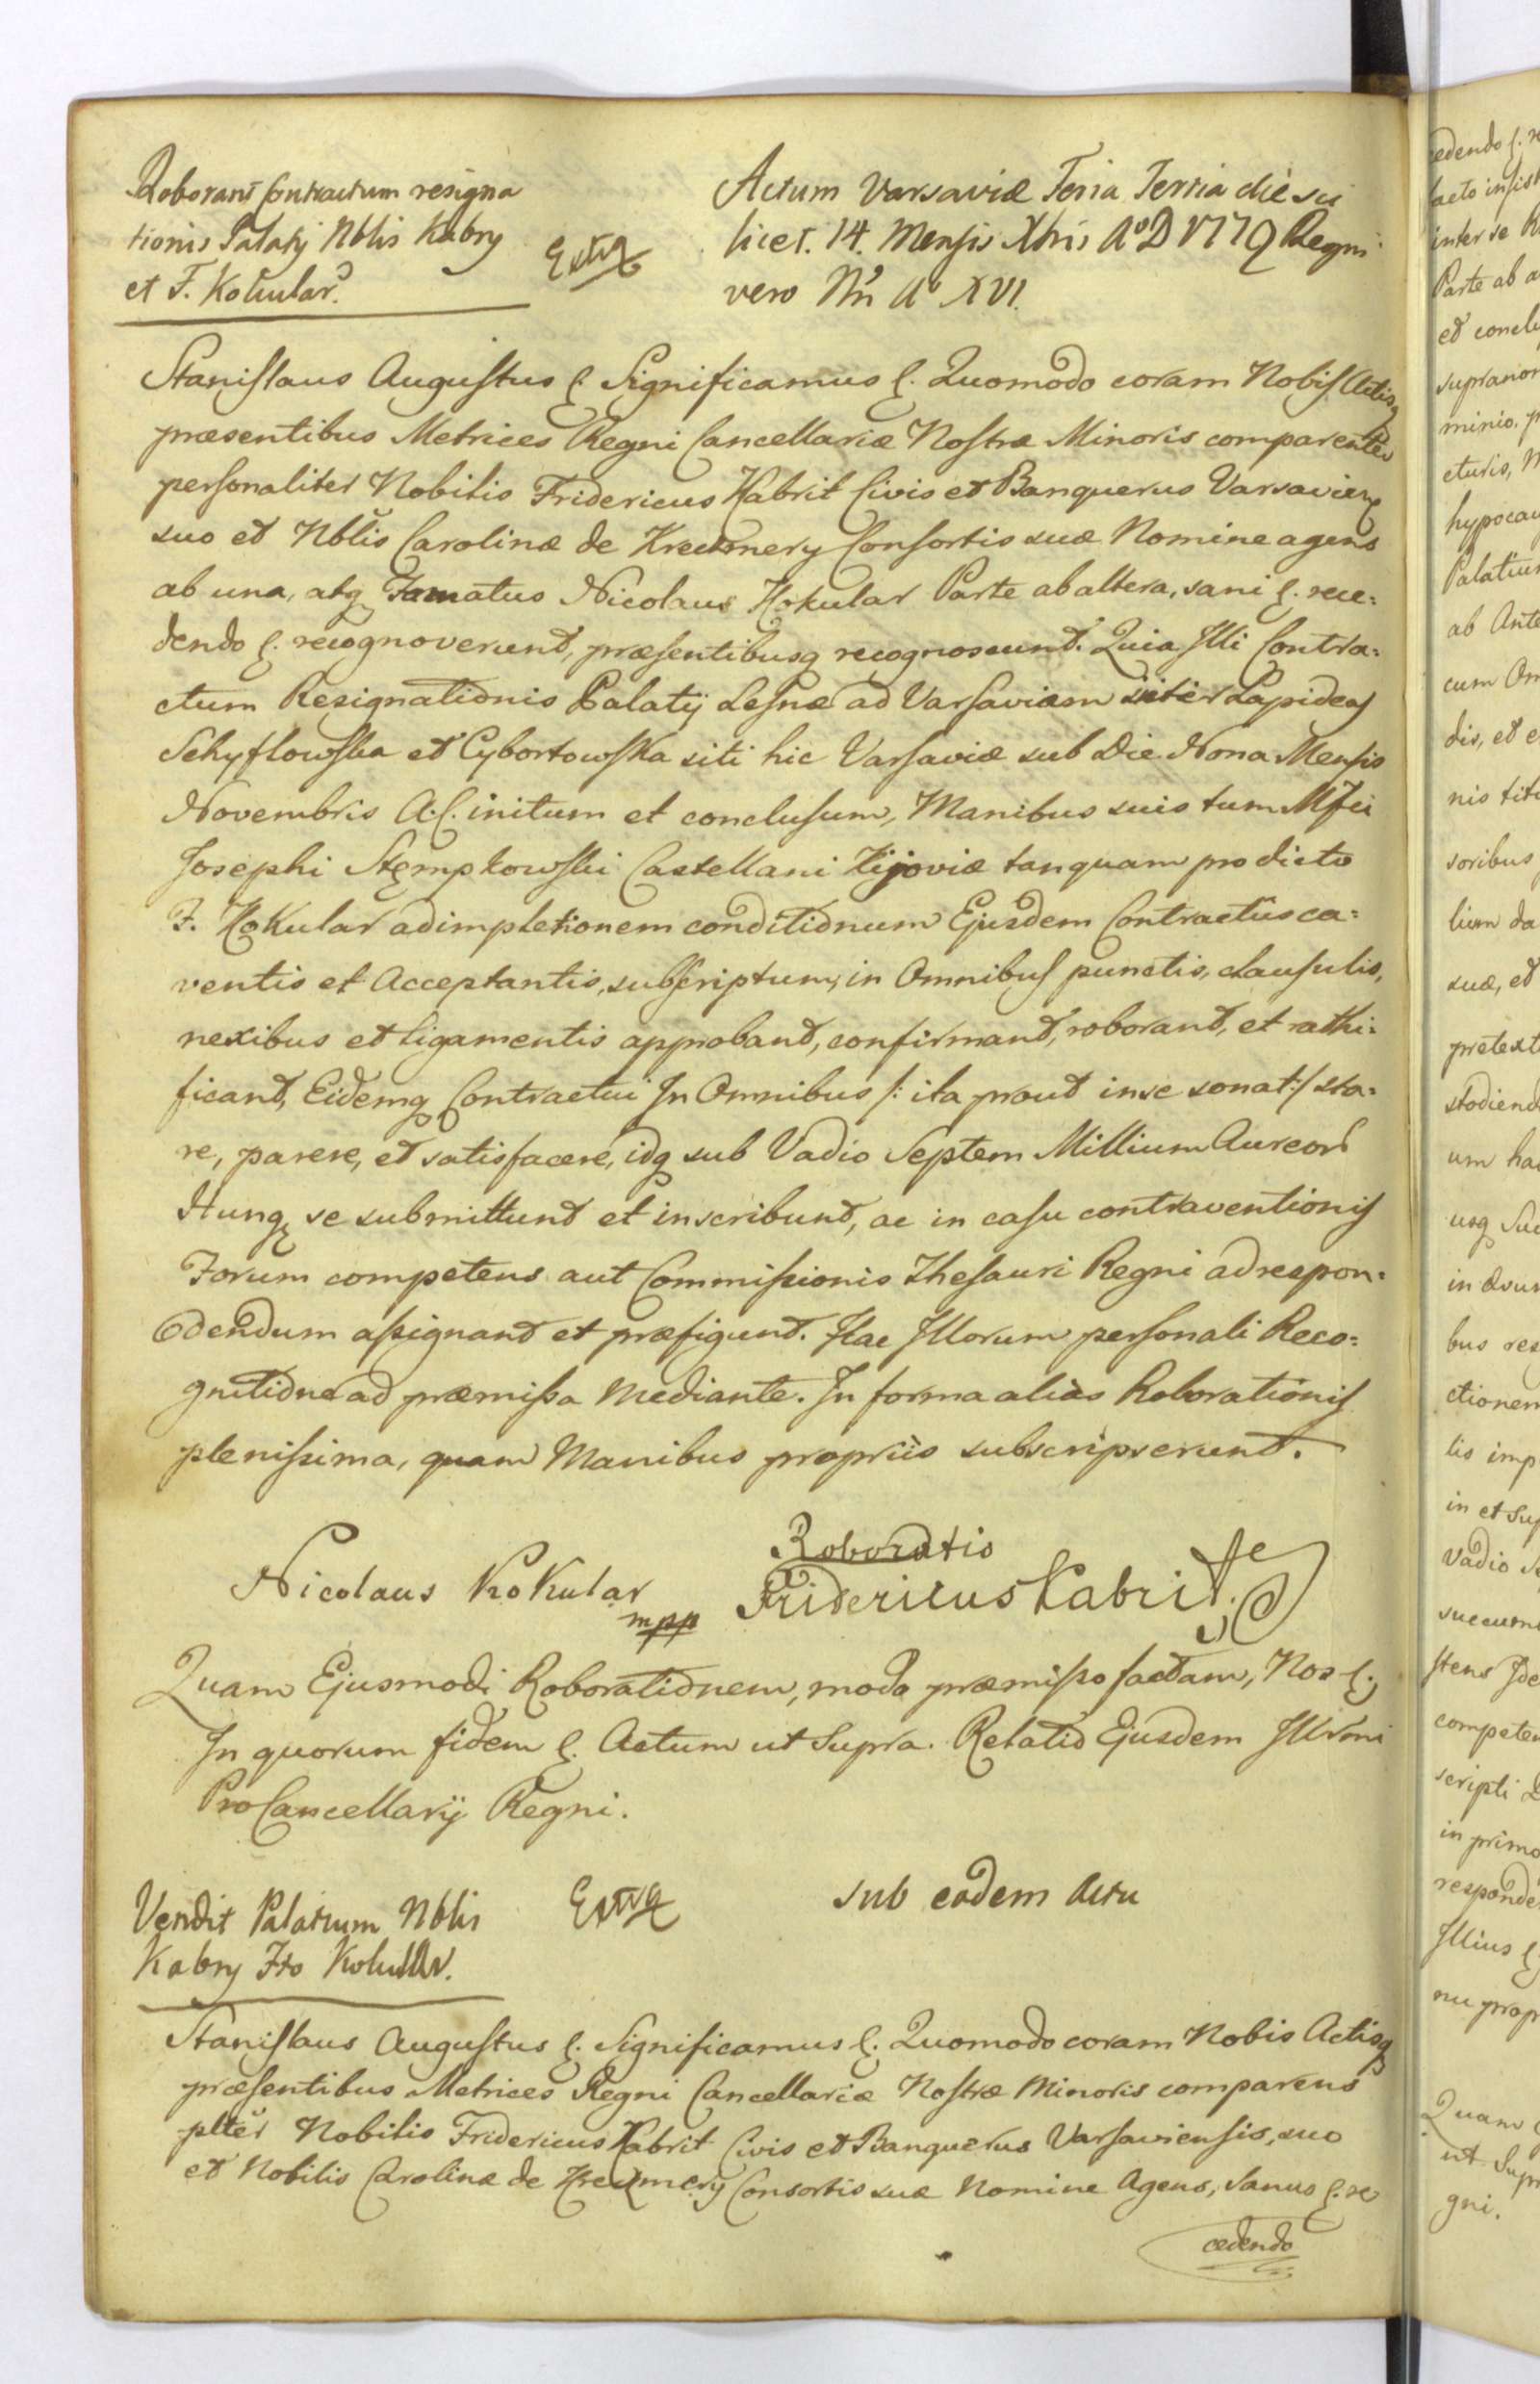 Roborant Contractum resigna
tionis Palatij Nblis Kabry
et F. Kokular.
Extra
Actum Varsaviæ Feria Tertia die sci
licet. 14. Mensis Xbris A° D 1779 Regni
vero Nri A° XVI.
Stanislaus Augustus &. Significamus &. Quomodo coram Nobis Actisq
præsentibus Metrices Regni Cancellariæ Nostræ Minoris comparentes
personaliter Nobilis Fridericus Kabrit Civis et Banquerus Varsavien
suo et Nblis Carolinæ de Consortis suæ Nomine agens
ab una, atq Famatus Nicolaus Kokular Parte ab altera, sani &. rece:
dendo &. recognoverunt, præsentibusq recognoscunt. Quia Illi Contra:
ctum Resignationis Palatij Lesnæ ad Varsaviam inter Lapideas
Schyflowska et Cybortowska siti hic Varsaviæ sub Die Nona Mensis
Novembris A. C. initum et conclusum, Manibus suis tum Mfci
Josephi Stempkowski Castellani Kijoviæ tanquam pro dicto
F. Kokular adimpletionem conditionum Ejusdem Contractûs ca:
ventis et Acceptantis, subscriptum, in Omnibus punctis, clausulis,
nexibus et ligamentis approband, confirmand, roborand, et rathi:
ficand, Eidemq Contractui In Omnibus /: ita prout in se sonat :/ sta:
re, parere, et satisfacere, idq sub Vadio Septem Millium Aureor
Hung se submittunt et inscribunt, ac in casu contraventionis
Forum competens aut Commissionis Thesauri Regni ad respon:
dendum assignant et præfigunt. Hac Illorum personali Reco:
gnitione ad præmissa Mediante. In forma aliàs Roborationis
plenissima, quam Manibus propriis subscripserunt.
Roboratio
Nicolaus Kokular mpp
Fridericus Kabrit.
Quam Ejusmodi Roborationem, modo præmisso factam, Nos &.
In quorum fidem &. Actum ut Supra. Relatio Ejusdem Illrmi
ProCancellarij Regni.
Vendit Palatium Nblis
Kabry Fto Kokular.
Extra
sub eodem Actu
Stanislaus Augustus &. Significamus &. Quomodo coram Nobis Actisq
præsentibus Metrices Regni Cancellariæ Nostræ Minoris comparens
plter Nobilis Fridericus Kabrit Civis et Banquerus Varsaviensis, suo
et Nobilis Carolinæ de Consortis suæ Nomine Agens, Sanus &. re
cedendo